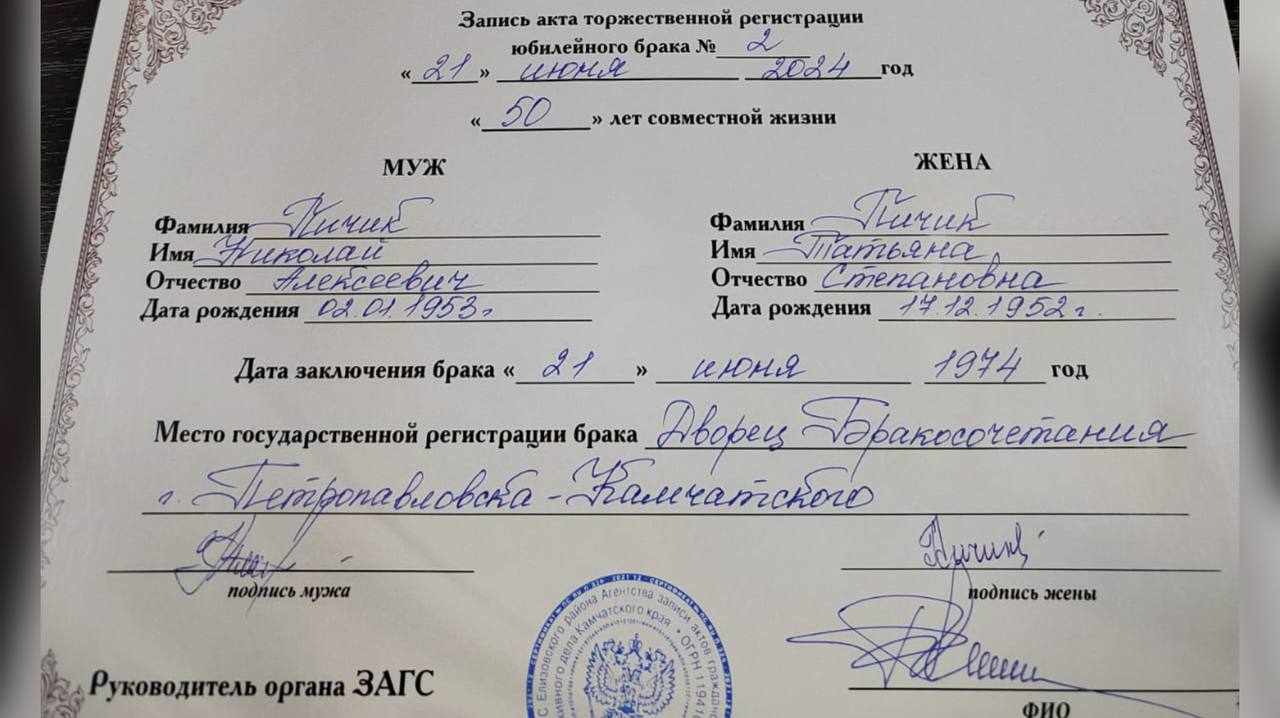 Запись акта торжественной регистрации
юбилейного брака № 2
«21» июня 2024 год
«50» лет совместной жизни
МУЖ
Фамилия Пичик
Имя Николай
Отчество Алексеевич
Дата рождения 02.01.1953 г
ЖЕНА
Фамилия Пичик
Имя Татьяна
Отчество Степановна
Дата рождения 17.12.1952 г.
Дата заключения брака «21» июня 1974 год
Место государственной регистрации брака Дворец Бракосочетания
г. Петропавловска-Камчатского
подпись мужа
Пичик
подпись жены
Руководитель органа ЗАГС
ФИО
Елизовского района Агентства записи актов гражданс
ивного дела Камчатского края • ОГРН 11941